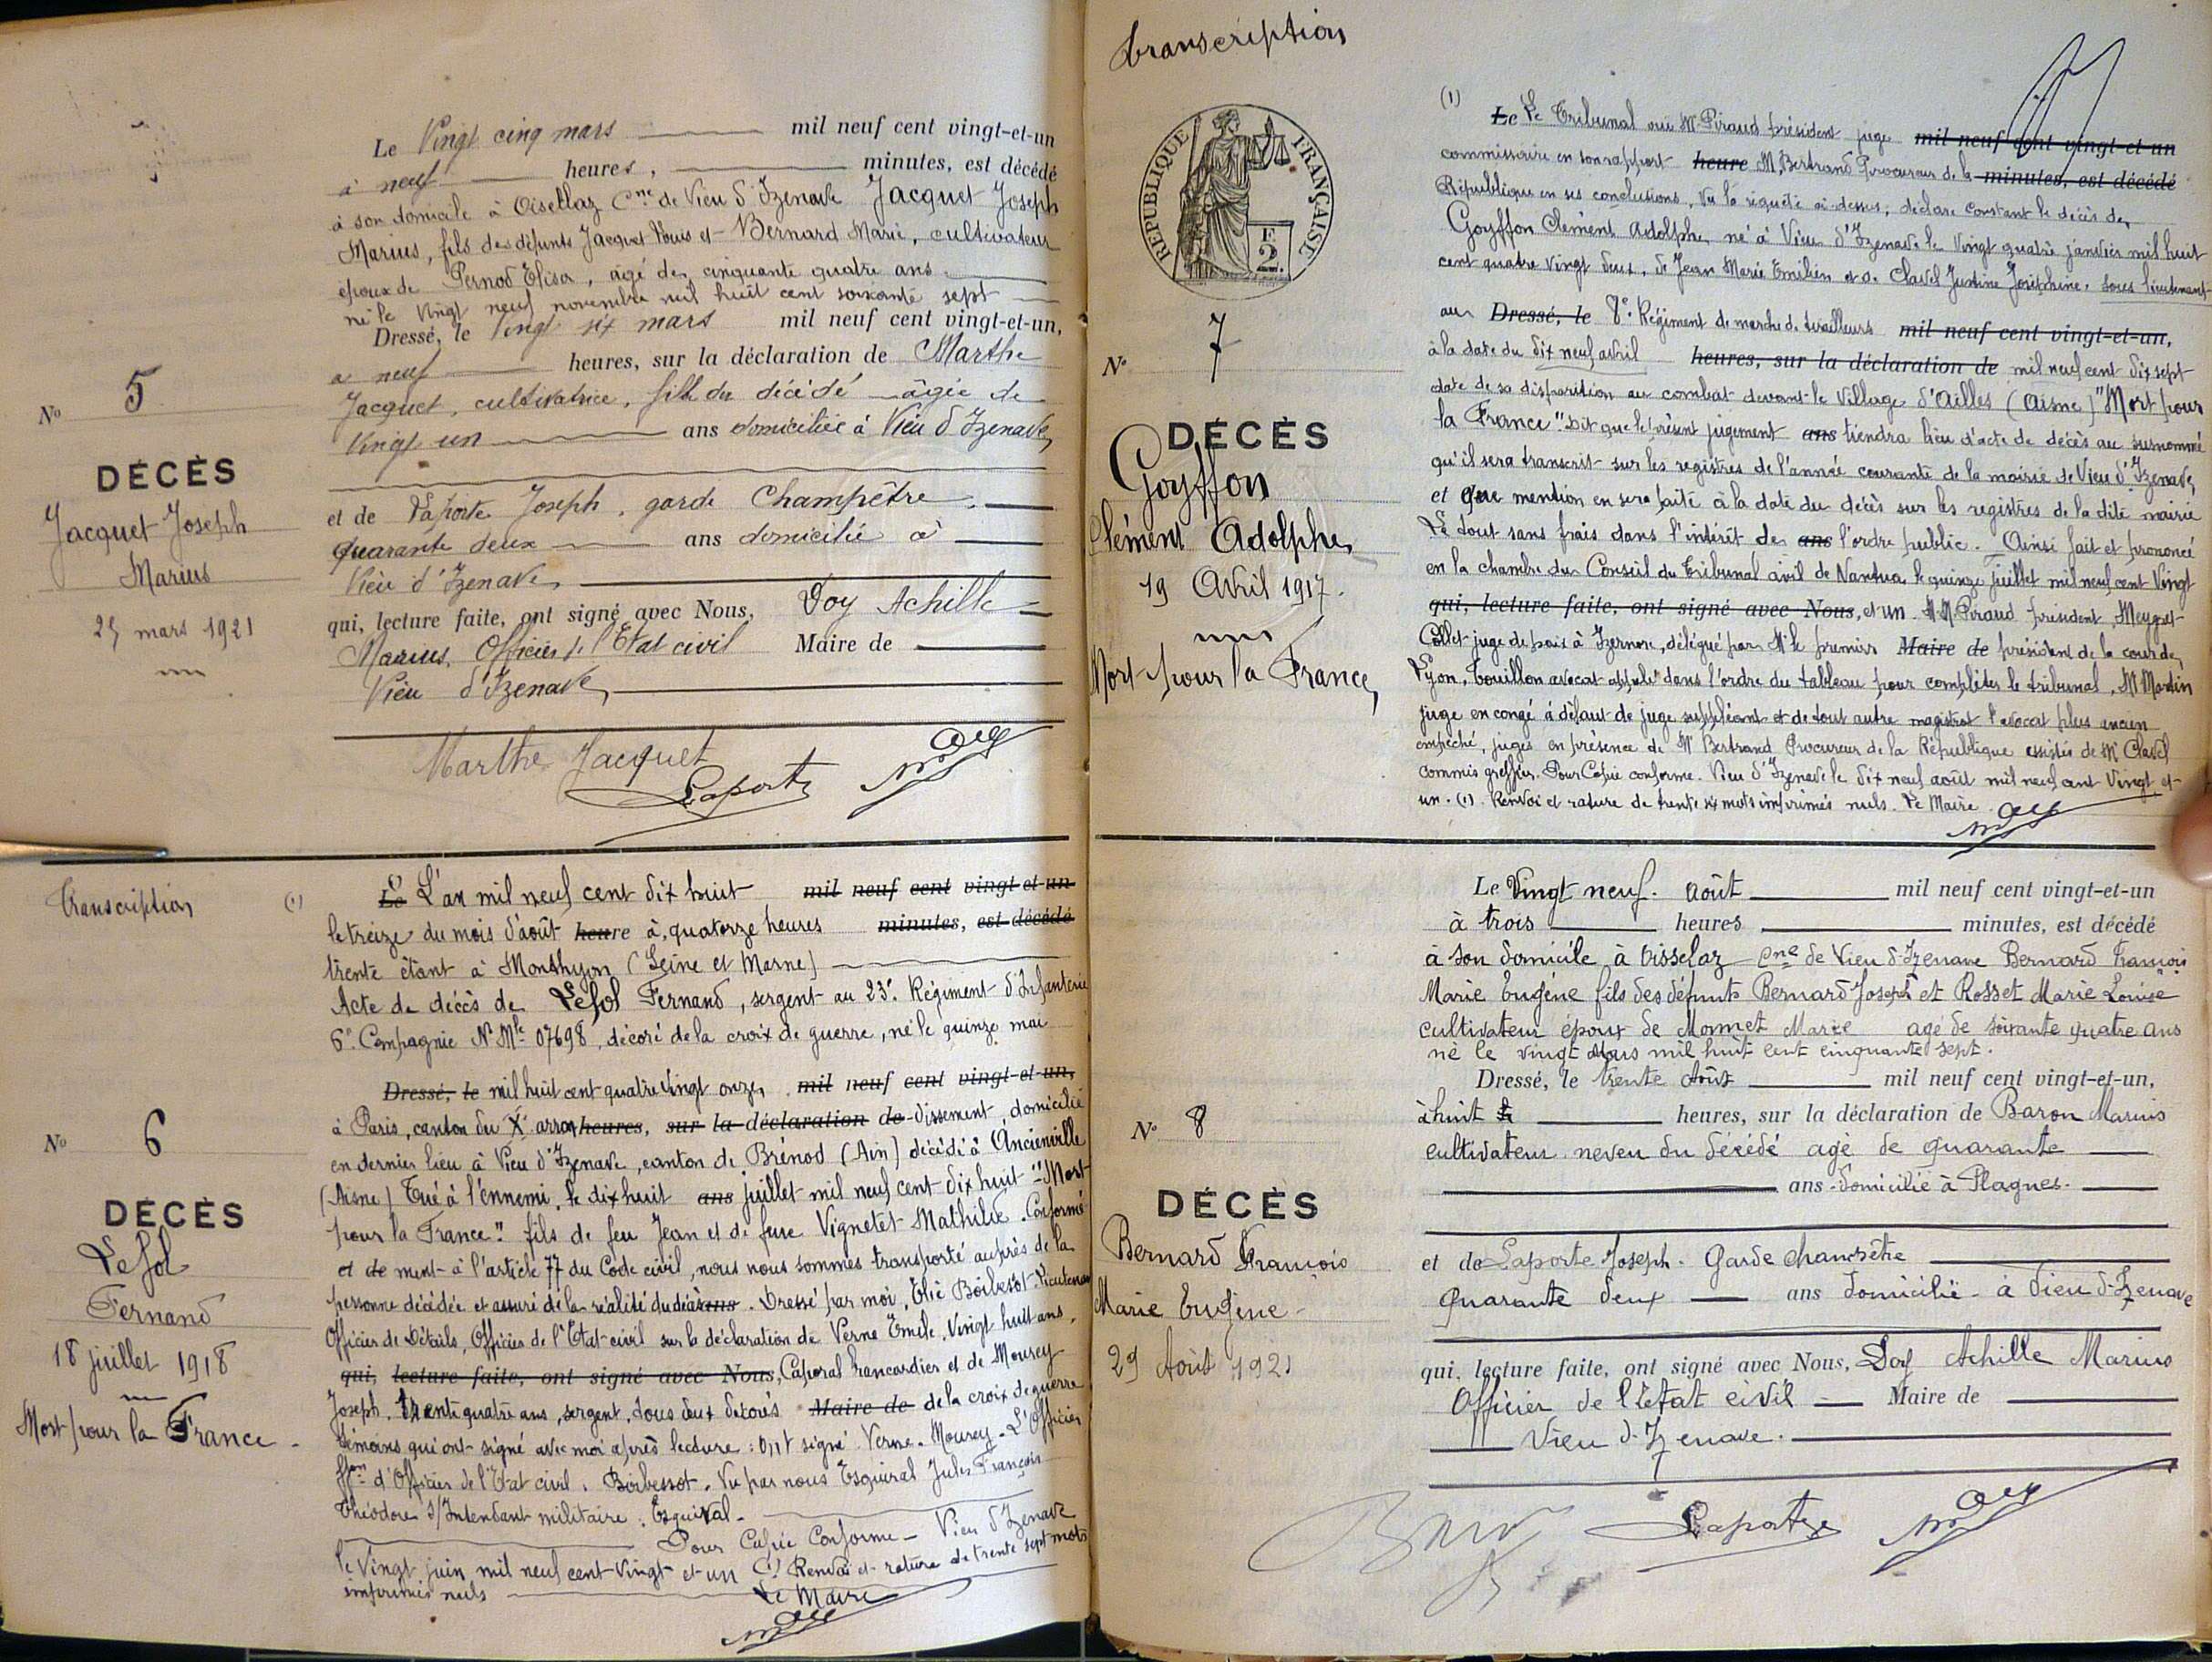 Le Vingt cinq mars mil neuf cent vingt-et-un
à neuf heures, minutes, est décédé
à son domicile à Oisellaz Cne de Vieu d'Izenave Jacquet Joseph
Marius, fils des défunts Jacquet Louis et Bernard Marie, cultivateur
époux de Pernod Elisa, âgé de cinquante quatre ans
né le Vingt neuf novembre mil huit cent soixante sept
Dressé, le Vingt six mars mil neuf cent vingt-et-un,
à neuf heures, sur la déclaration de Marthe
Jacquet, cultivatrice, fille du décédé âgée de
Vingt un ans domiciliée à Vieu d'Izenave
et de Laporte Joseph, garde Champêtre
Quarante deux ans domicilié à
Vieu d'Izenave
qui, lecture faite, ont signé avec Nous, Doy Achille
Marius, Officier de l'Etat civil Maire de
Vieu d'Izenave
N° 5
DÉCÈS
Jacquet Joseph
Marius
25 mars 1921
Marthe Jacquet
Laporte
Doy
Transcription
(1) Le L'an mil neuf cent dix huit mil neuf cent vingt-et-un
le treize du mois d'août heure à quatorze heures minutes, est décédé
trente étant à Monthyon (Seine et Marne)
Acte de décès de Lefol Fernand, sergent au 23e Régiment d'Infanterie
6e Compagnie N° Mle 07698, décoré de la croix de guerre, né le quinze mai
Dressé, le mil huit cent quatre vingt onze, mil neuf cent vingt-et-un,
à Paris, canton du X arron heures, sur la déclaration de dissement, domicilié
en dernier lieu à Vieu d'Izenave, canton de Brénod (Ain) décédé à Ancienville
(Aisne) Tué à l'ennemi, le dix huit ans juillet mil neuf cent dix huit "Mort
pour la France" fils de feu Jean et de feue Vignetet Mathilde. Conformé
et de ment à l'article 77 du Code civil, nous nous sommes transporté auprès de la
personne décédée et assuré de la réalité du décès ans. Dressé par moi, Elie Boibessot Lieutenant
Officier de Détails, Officier de l'Etat civil sur la déclaration de Verne Emile, Vingt huit ans,
qui, lecture faite, ont signé avec Nous, Caporal brancardier et de Mourey
Joseph, trente quatre ans, sergent, tous deux décorés Maire de de la croix de guerre
témoins qui ont signé avec moi après lecture : Ont signé Verne. Mourey. L'Officier
ffon d'Officier de l'Etat civil, Boibessot. Vu par nous Esquiral Jules François
Théodore S/Intendant militaire : Esquiral.
Pour Copie Conforme - Vieu d'Izenave
le Vingt juin mil neuf cent Vingt et un (1) Renvoi et rature de trente sept mots
imprimés nuls Le Maire
Doy
N° 6
DÉCÈS
Lefol
Fernand
18 juillet 1918
Mort pour la France
transcription
REPUBLIQUE FRANÇAISE
2F.
(1) Le Le Tribunal ouï Mr Piraud président juge mil neuf cent vingt-et-un
commissaire en son rapport heure M. Bertrand Procureur de la minutes, est décédé
République en ses conclusions, Vu la requête ci-dessus, déclare constant le décès de
Goyffon Clément Adolphe, né à Vieu d'Izenave le Vingt quatre janvier mil huit
cent quatre vingt deux, de Jean Marie Emilien et de Clavel Justine Joséphine, sous lieutenant
au Dressé, le 8e Régiment de marche de tirailleurs mil neuf cent vingt-et-un,
à la date du dix neuf avril heures, sur la déclaration de mil neuf cent dix sept
date de sa disparition au combat devant le Village d'Ailles (Aisne) "Mort pour
la France". Dit que le présent jugement ans tiendra lieu d'acte de décès au susnommé
qu'il sera transcrit sur les registres de l'année courante de la mairie de Vieu d'Izenave
et que mention en sera faite à la date du décès sur les registres de la dite mairie
Le tout sans frais dans l'intérêt de ans l'ordre public. Ainsi fait et prononcé
en la chambre du Conseil du Tribunal civil de Nantua, le quinze juillet mil neuf cent Vingt
qui, lecture faite, ont signé avec Nous, et un. M.M. Piraud président, Meygret
Collet juge de paix à Izernore, délégué par Mr le premier Maire de président de la cour de
Lyon, Touillon avocat appelé dans l'ordre du tableau pour compléter le tribunal, Mr Martin
juge en congé à défaut de juge suppléant et de tout autre magistrat l'avocat plus ancien
empêché, juges en présence de Mr Bertrand Procureur de la République assistés de Mr Clavel
commis greffier. Pour Copie conforme. Vieu d'Izenave le dix neuf août mil neuf cent Vingt et
un. (1) Renvoi et rature de trente six mots imprimés nuls. Le Maire
Doy
N° 7
DÉCÈS
Goyffon
Clément Adolphe
19 Avril 1917.
Mort pour la France
Le Vingt neuf. Août mil neuf cent vingt-et-un
à trois heures minutes, est décédé
à son domicile à Oisselaz Cne de Vieu d'Izenave Bernard François
Marie Eugène fils des défunts Bernard Joseph et Rosset Marie Louise
cultivateur époux de Monnet Marie agé de soixante quatre ans
né le vingt Mars mil huit cent cinquante sept.
Dressé, le trente Août mil neuf cent vingt-et-un,
à huit heures, sur la déclaration de Baron Marius
cultivateur neveu du décédé agé de quarante
ans domicilié à Plagnes.
et de Laporte Joseph. Garde champêtre
quarante deux ans domicilié à Vieu d'Izenave
qui, lecture faite, ont signé avec Nous, Doy Achille Marius
Officier de l'Etat civil Maire de
Vieu d'Izenave.
N° 8
DÉCÈS
Bernard François
Marie Eugène
29 Août 1921
Laporte
Doy